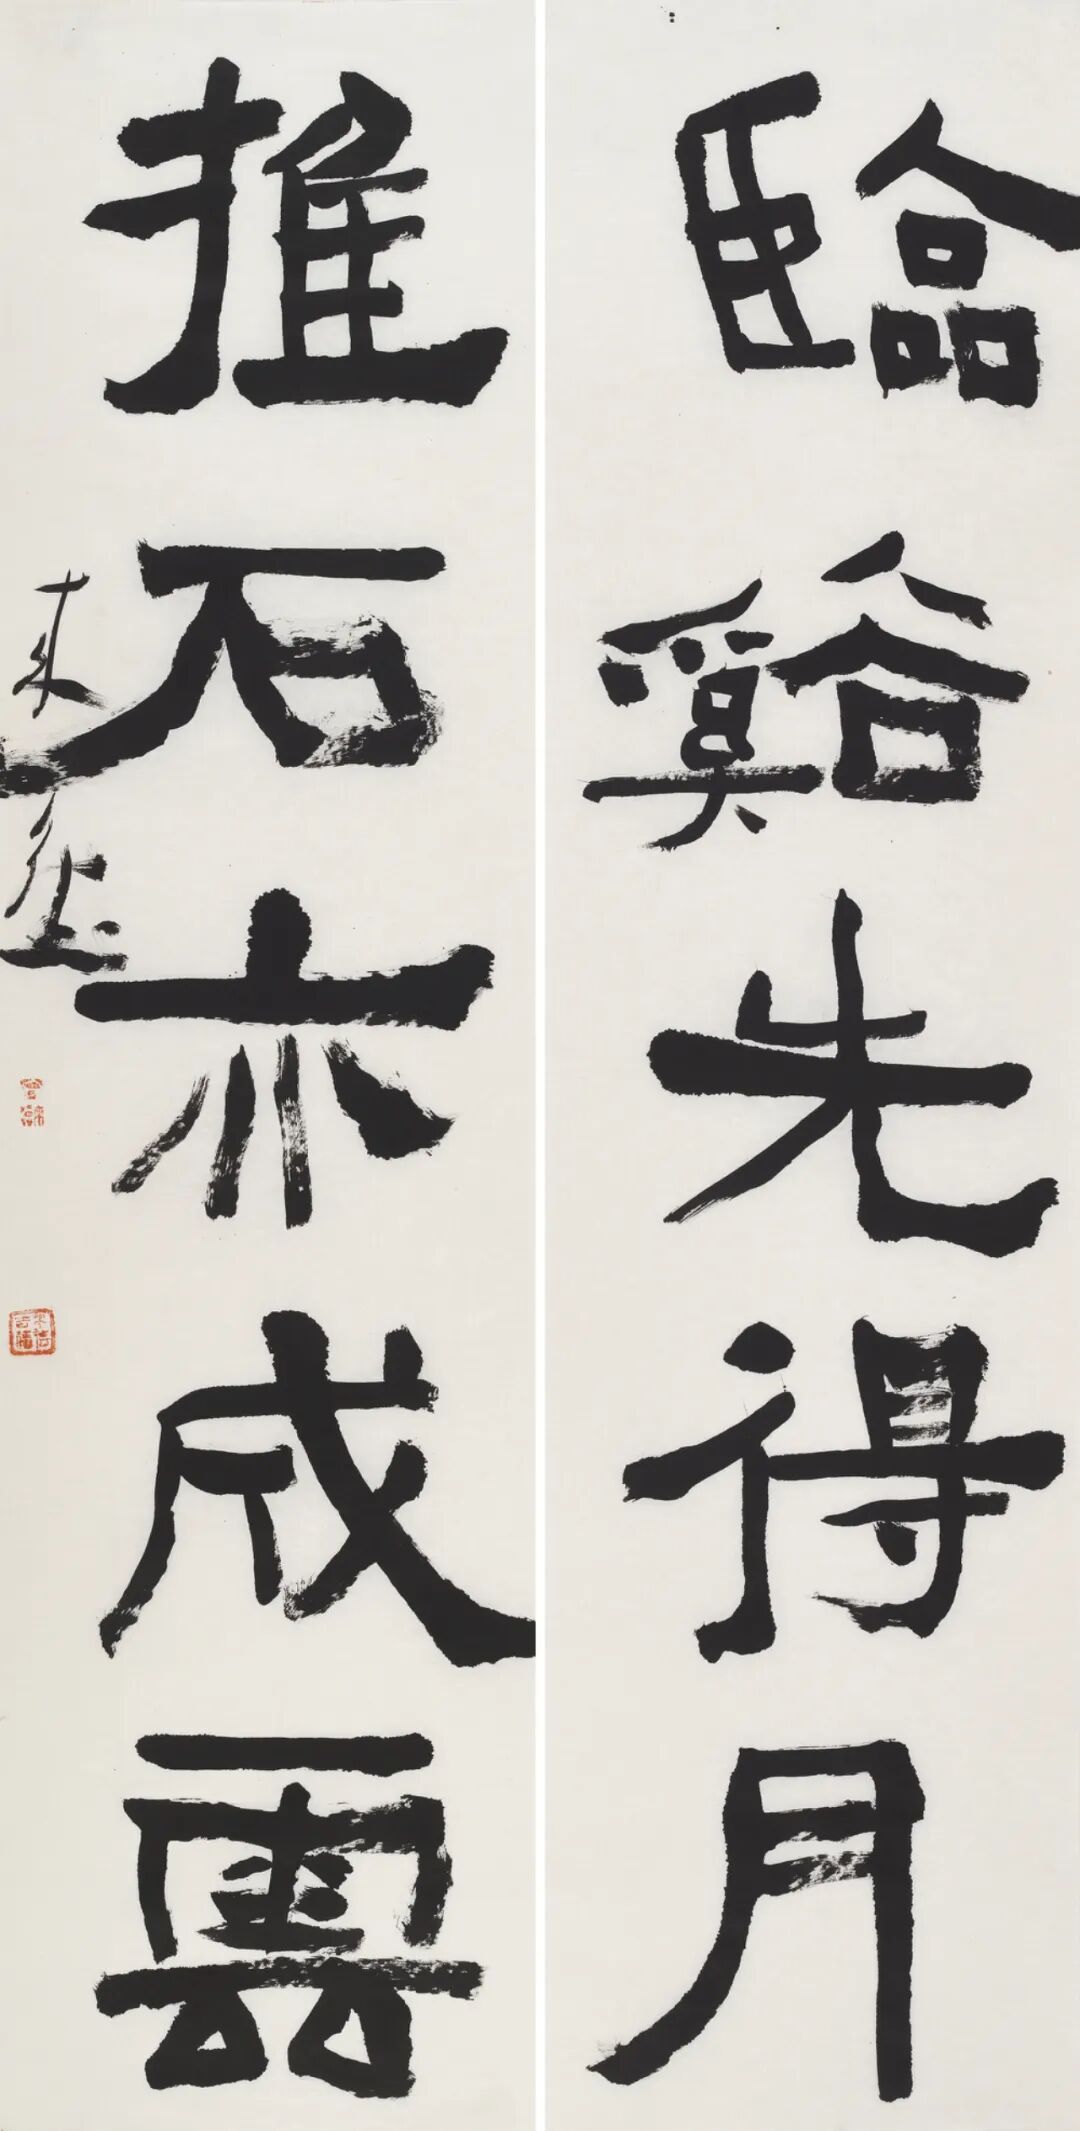 臨谿先得月
推石亦成雲
來岸